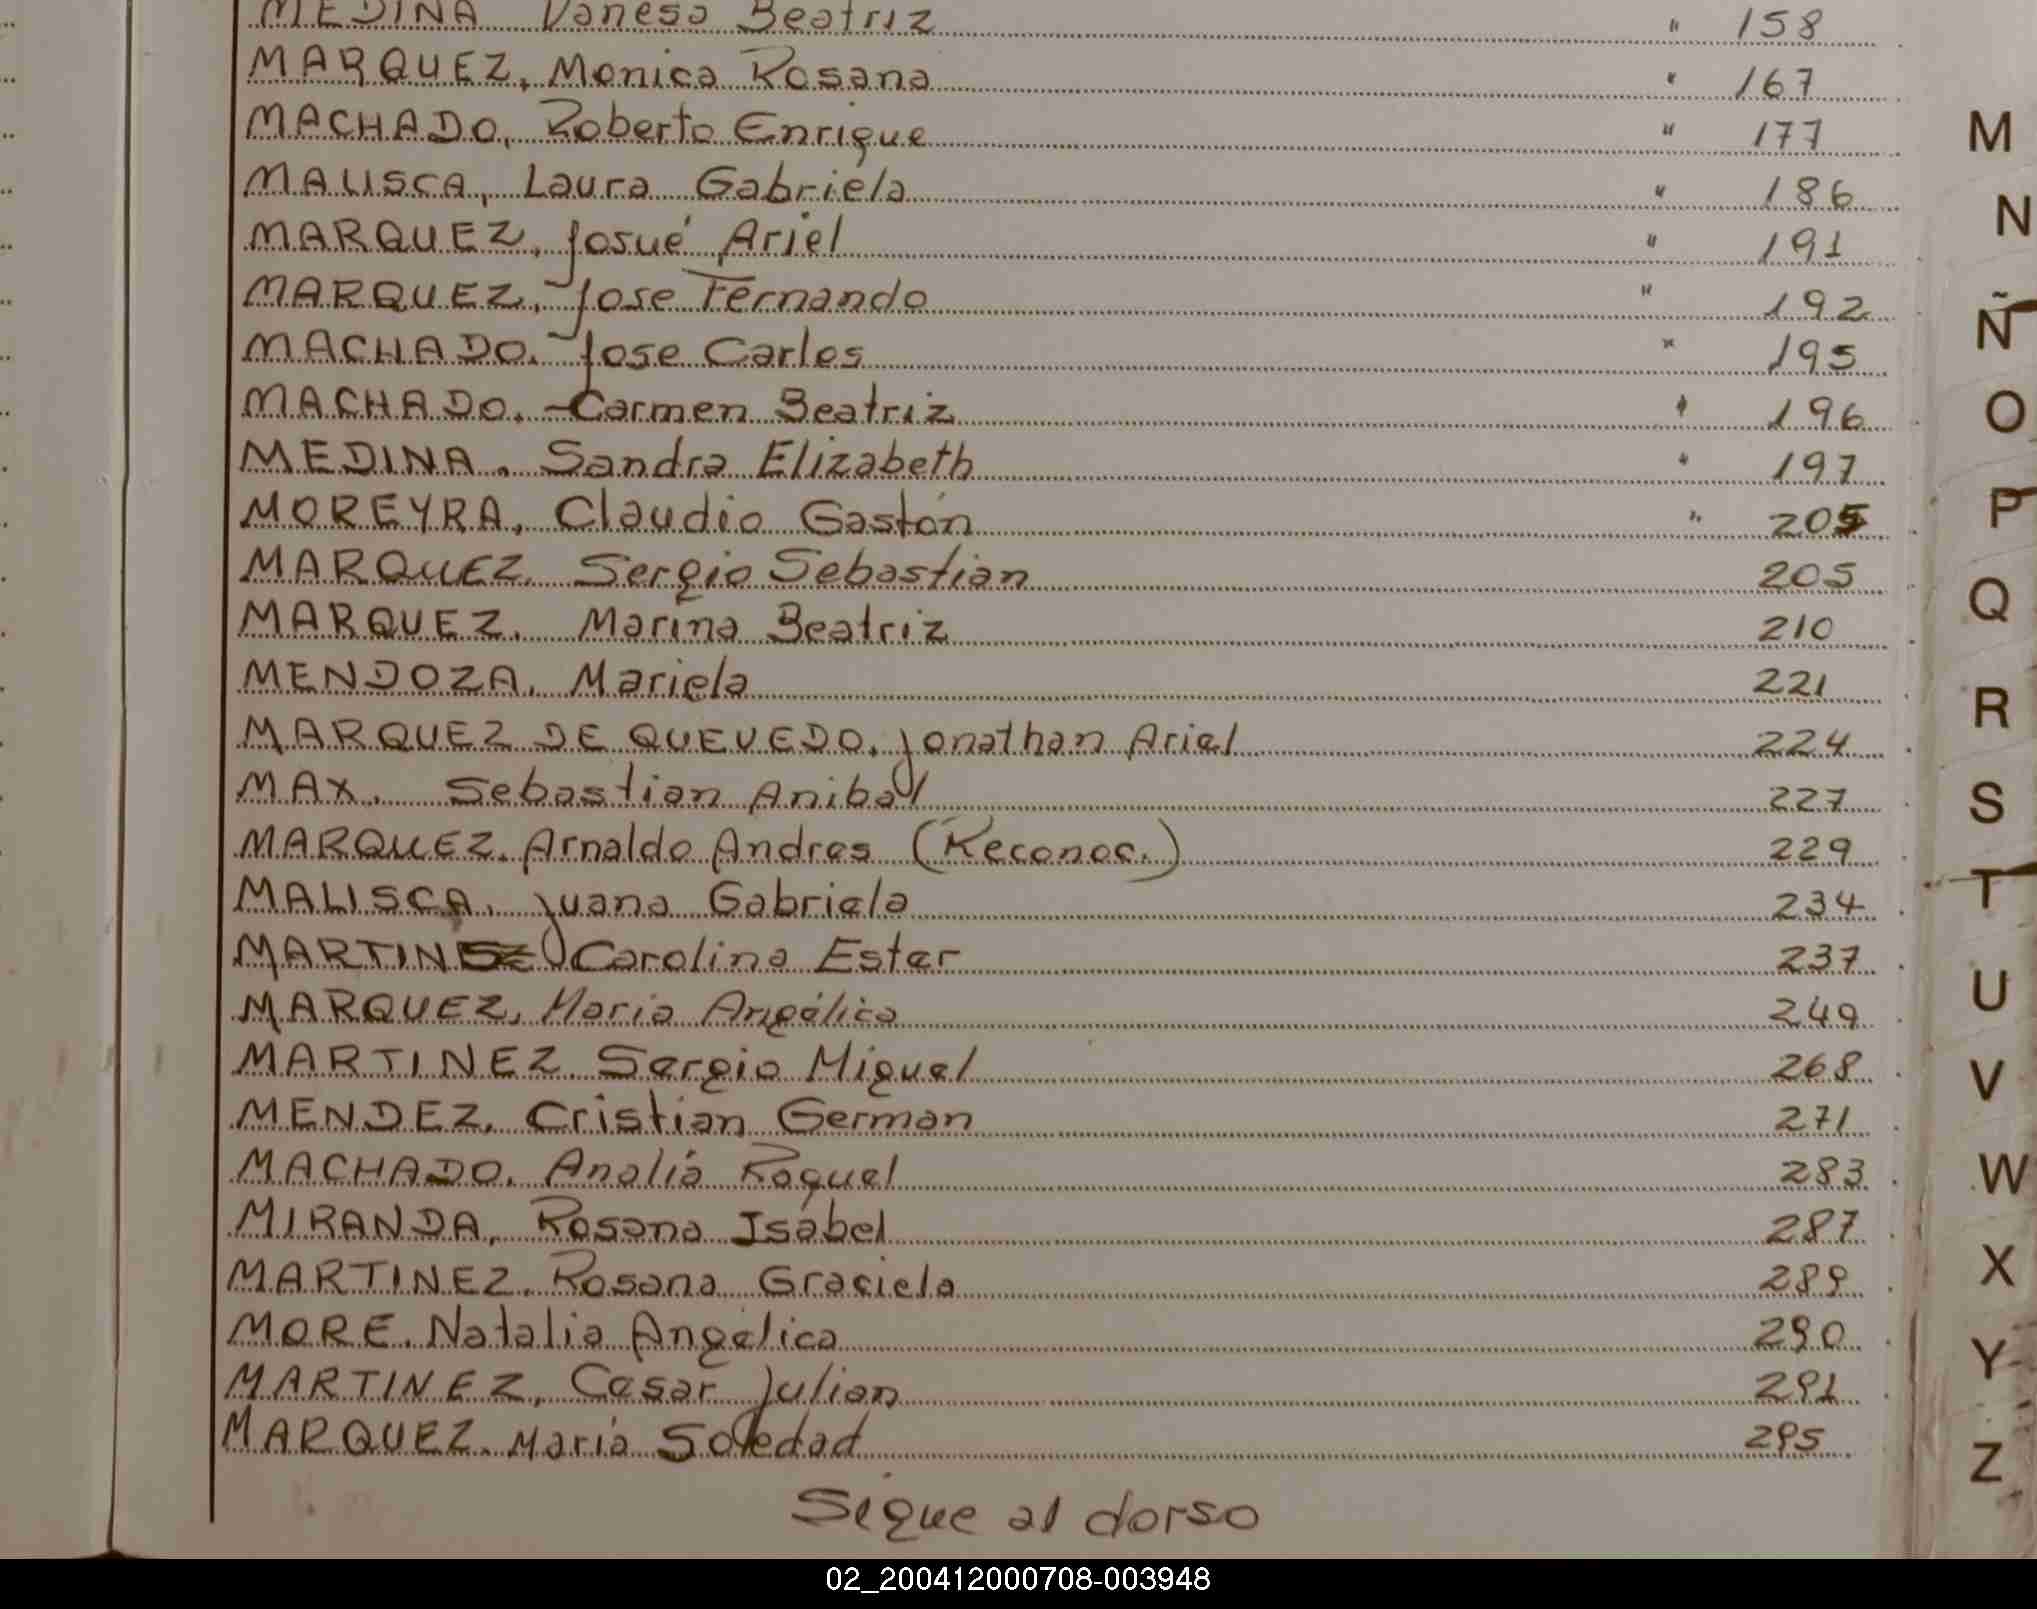 MEDINA Vanesa Beatriz " 158
MARQUEZ, Monica Rosana " 167
MACHADO, Roberto Enrique " 177
MALISCA, Laura Gabriela " 186
MARQUEZ, Josué Ariel " 191
MARQUEZ, Jose Fernando " 192
MACHADO, Jose Carlos " 195
MACHADO. Carmen Beatriz " 196
MEDINA, Sandra Elizabeth " 197
MOREYRA, Claudio Gastón " 205
MARQUEZ, Sergio Sebastian 205
MARQUEZ, Marina Beatriz 210
MENDOZA, Mariela 221
MARQUEZ DE QUEVEDO, Jonathan Ariel 224
MAX, Sebastian Anibal 227
MARQUEZ, Arnaldo Andres (Reconoc.) 229
MALISCA, Juana Gabriela 234
MARTINEZ Carolina Ester 237
MARQUEZ, Maria Angélica 249
MARTINEZ, Sergio Miguel 268
MENDEZ, Cristian German 271
MACHADO, Analía Raquel 283
MIRANDA, Rosana Isabel 287
MARTINEZ, Rosana Graciela 289
MORE, Natalia Angelica 290
MARTINEZ, Cesar Julian 291
MARQUEZ, Maria Soledad 295
Sigue al dorso
M
N
Ñ
O
P
Q
R
S
T
U
V
W
X
Y
Z
02_200412000708-003948